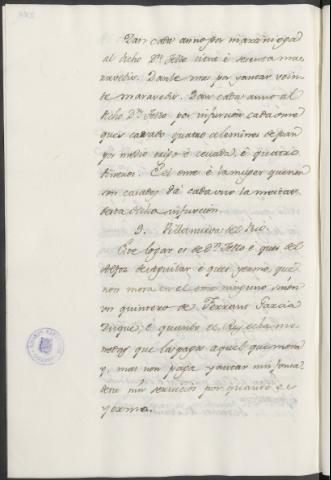 Dan cada anno por marzaniega
al dicho Dn. Tello tiene é sesenta ma-
ravedis. Danle mas por yantar vein-
te maravedis. Dan cada anno al
dicho Dn. Tello por infurcion cada ome
que es casado quatro celemines de pan
por medio trigo é cevada, é quatro
dineros. E el ome é la muger que non
son casados dá cada uno la meitat
desta dicha infurcion.
9. Villanueva del Rio
Este logar es de Dn. Tello é ques del
Alfoz de Aguilar é ques yermo, que
non mora en el ome ninguno sinon
un quintero de Ferrant Garcia
Duque, é quando el Rey echa mo-
nedas que las paga aquel que mora
y, mas non paga yantar nin fonsa-
dera nin servicios por quanto es
yermo.